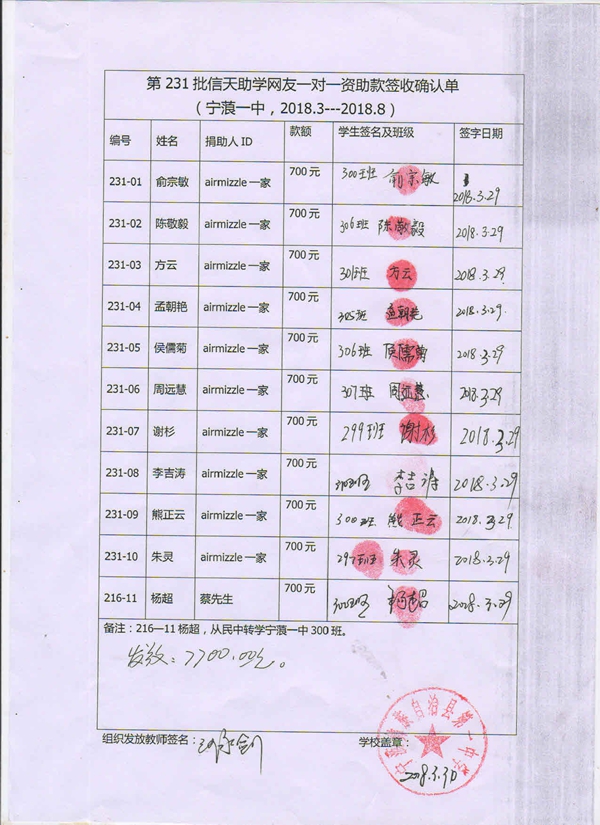 第231批信天助学网友一对一资助款签收确认单
（宁蒗一中，2018.3---2018.8）
编号 姓名 捐助人ID 款额 学生签名及班级 签字日期
231-01 俞宗敏 airmizzle一家 700元 300班 俞宗敏 2018.3.29
231-02 陈敬毅 airmizzle一家 700元 306班 陈敬毅 2018.3.29
231-03 方云 airmizzle一家 700元 301班 方云 2018.3.29
231-04 孟朝艳 airmizzle一家 700元 305班 孟朝艳 2018.3.29
231-05 侯儒菊 airmizzle一家 700元 306班 侯儒菊 2018.3.29
231-06 周远慧 airmizzle一家 700元 307班 周远慧 2018.3.29
231-07 谢杉 airmizzle一家 700元 299班 谢杉 2018.3.29
231-08 李吉涛 airmizzle一家 700元 李吉涛 2018.3.29
231-09 熊正云 airmizzle一家 700元 300班 熊正云 2018.3.29
231-10 朱灵 airmizzle一家 700元 297班 朱灵 2018.3.29
216-11 杨超 蔡先生 700元 300班 杨超 2018.3.29
备注：216—11杨超，从民中转学宁蒗一中300班。
发放：7700.00元。
组织发放教师签名：
学校盖章：
自治县第一中学
2018.3.30